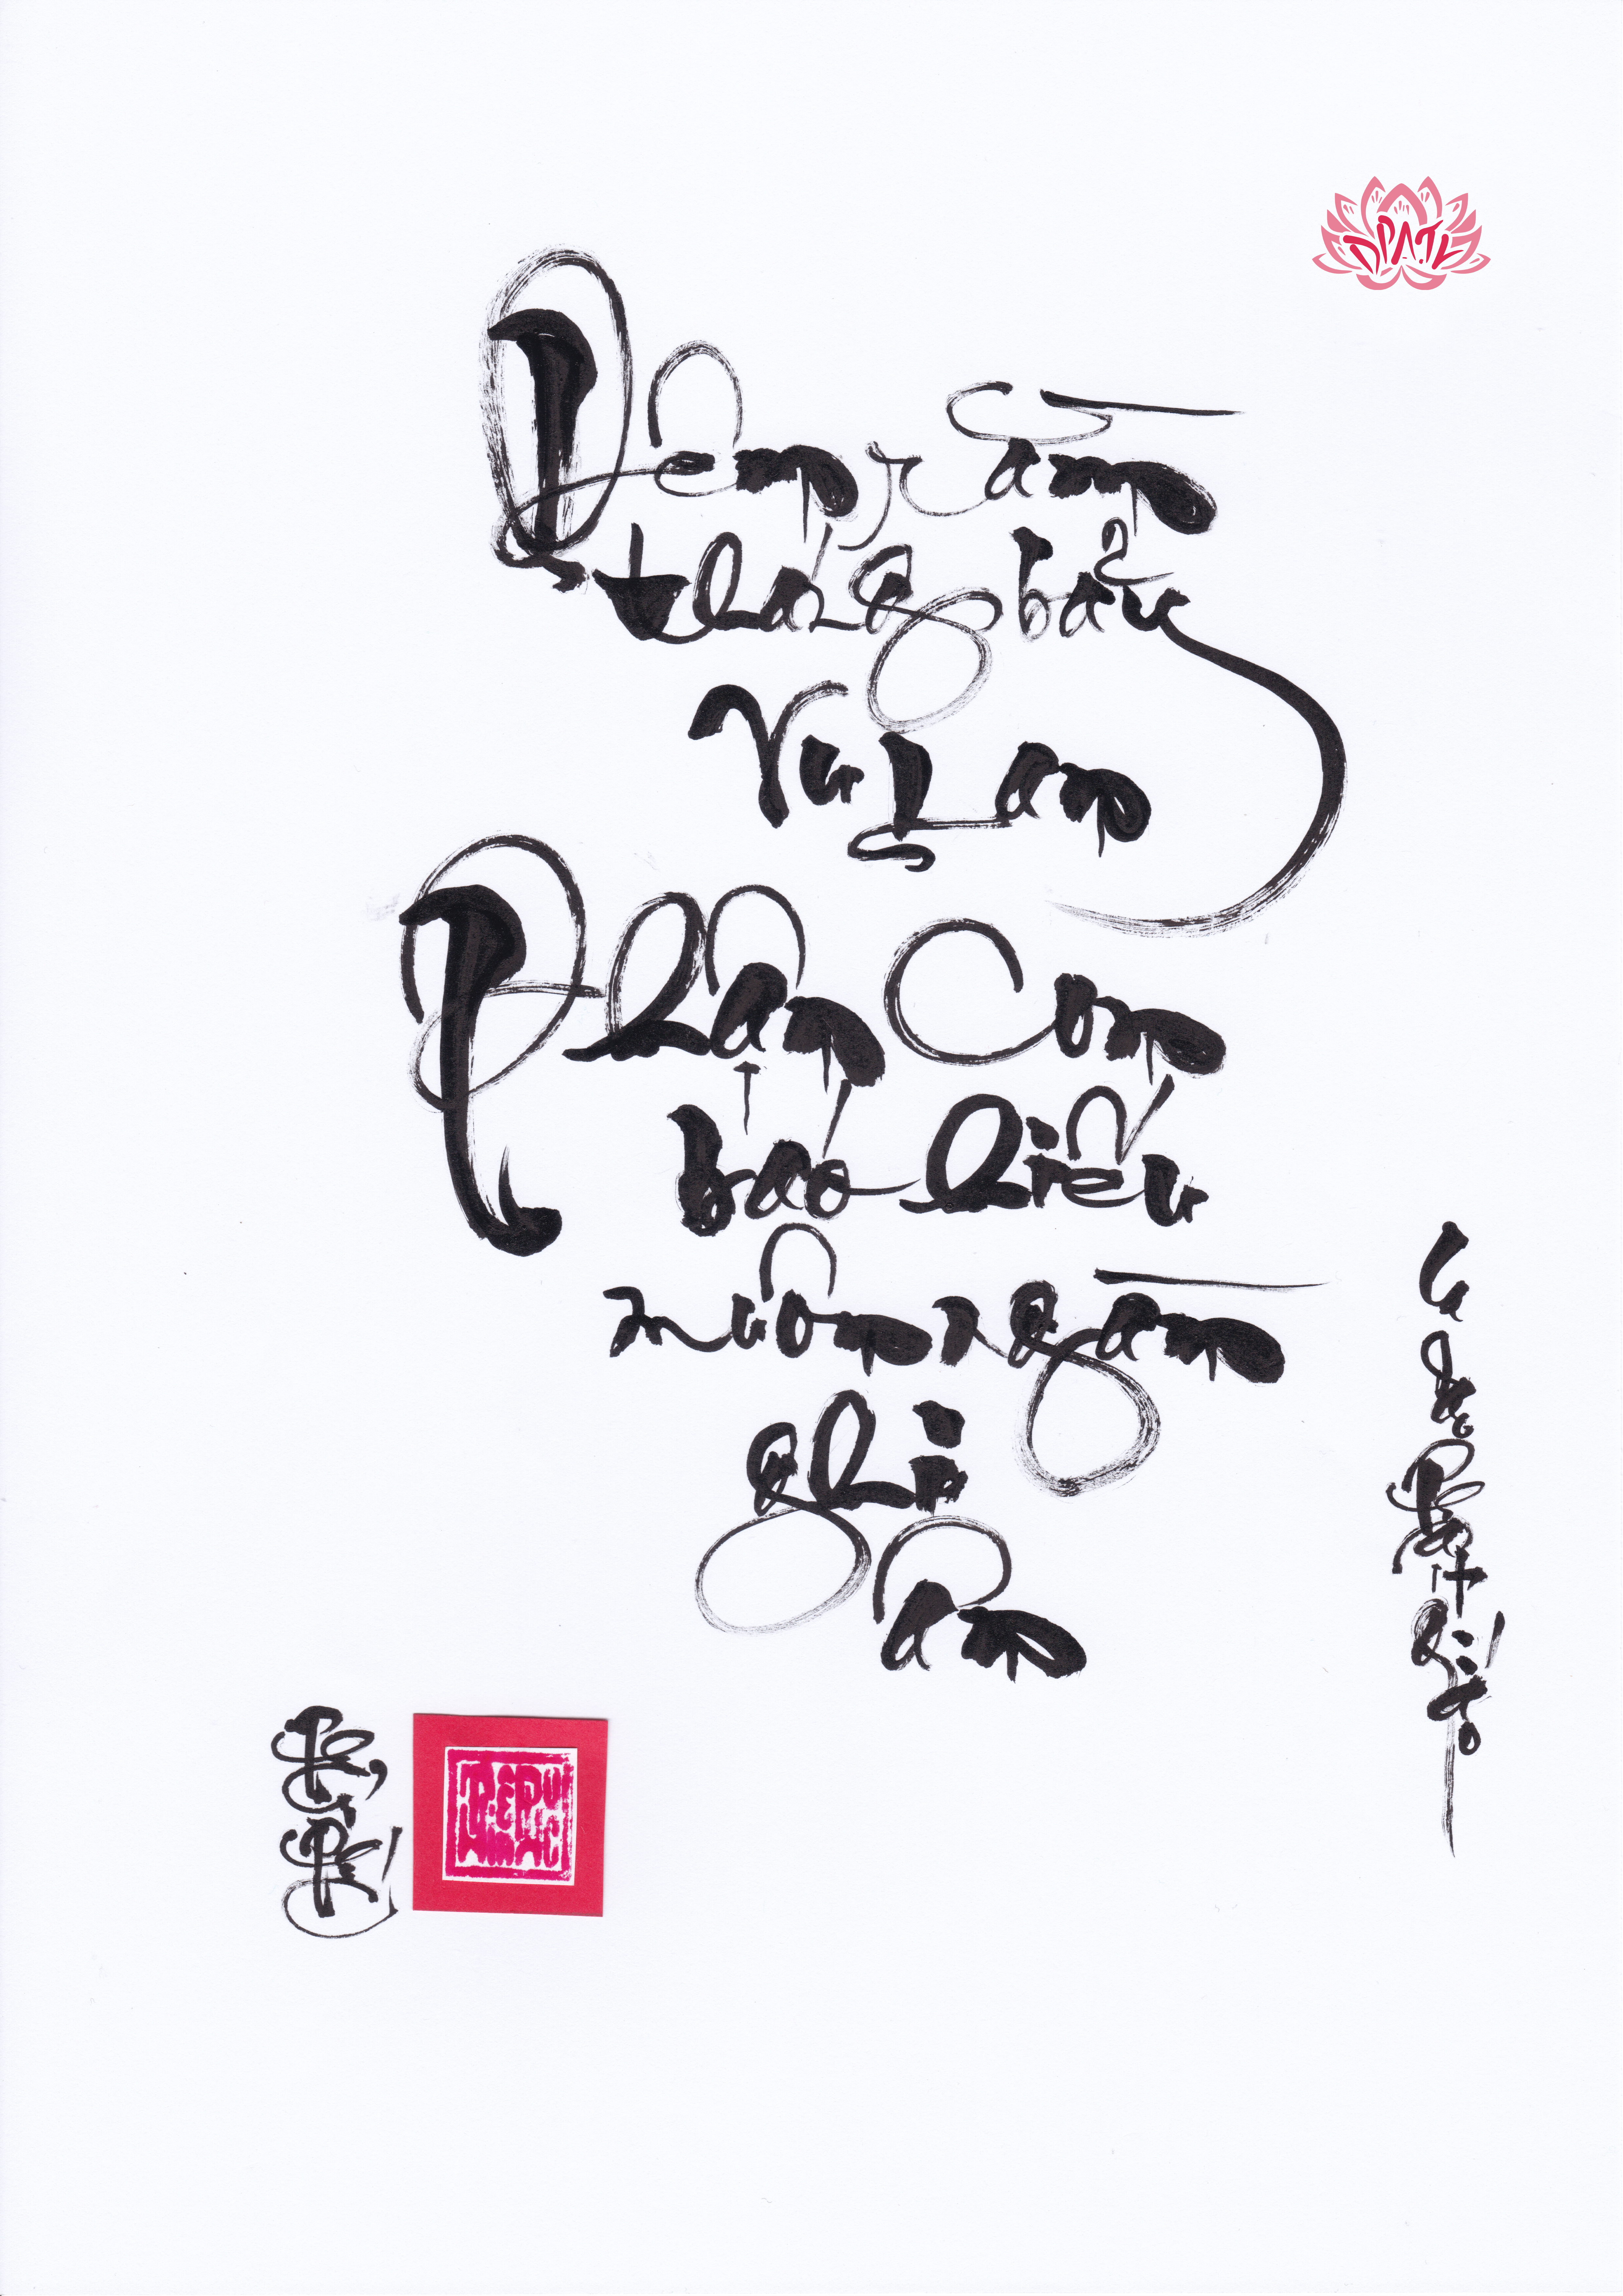 DPATL
Đêm rằm
tháng bảy
Vu Lan
Phận Con
báo hiếu
muôn ngàn
ghi
ân